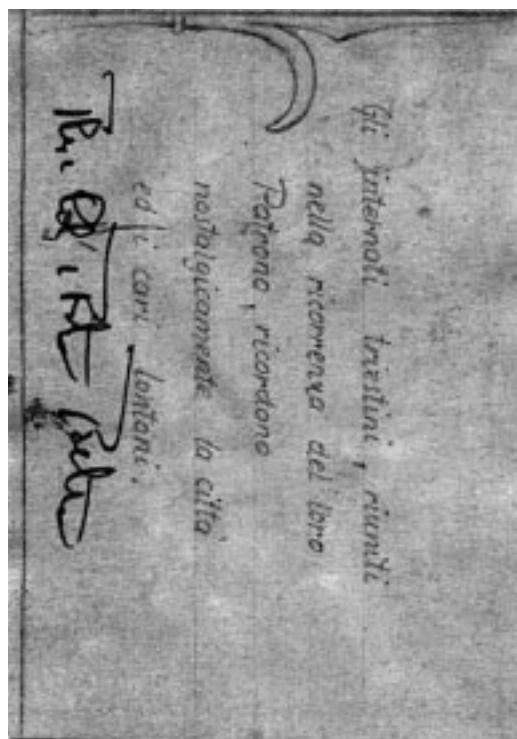 Gli internati triestini, riuniti
nella ricorrenza del loro
Patrono, ricordano
nostalgicamente la città
ed i cari lontani.